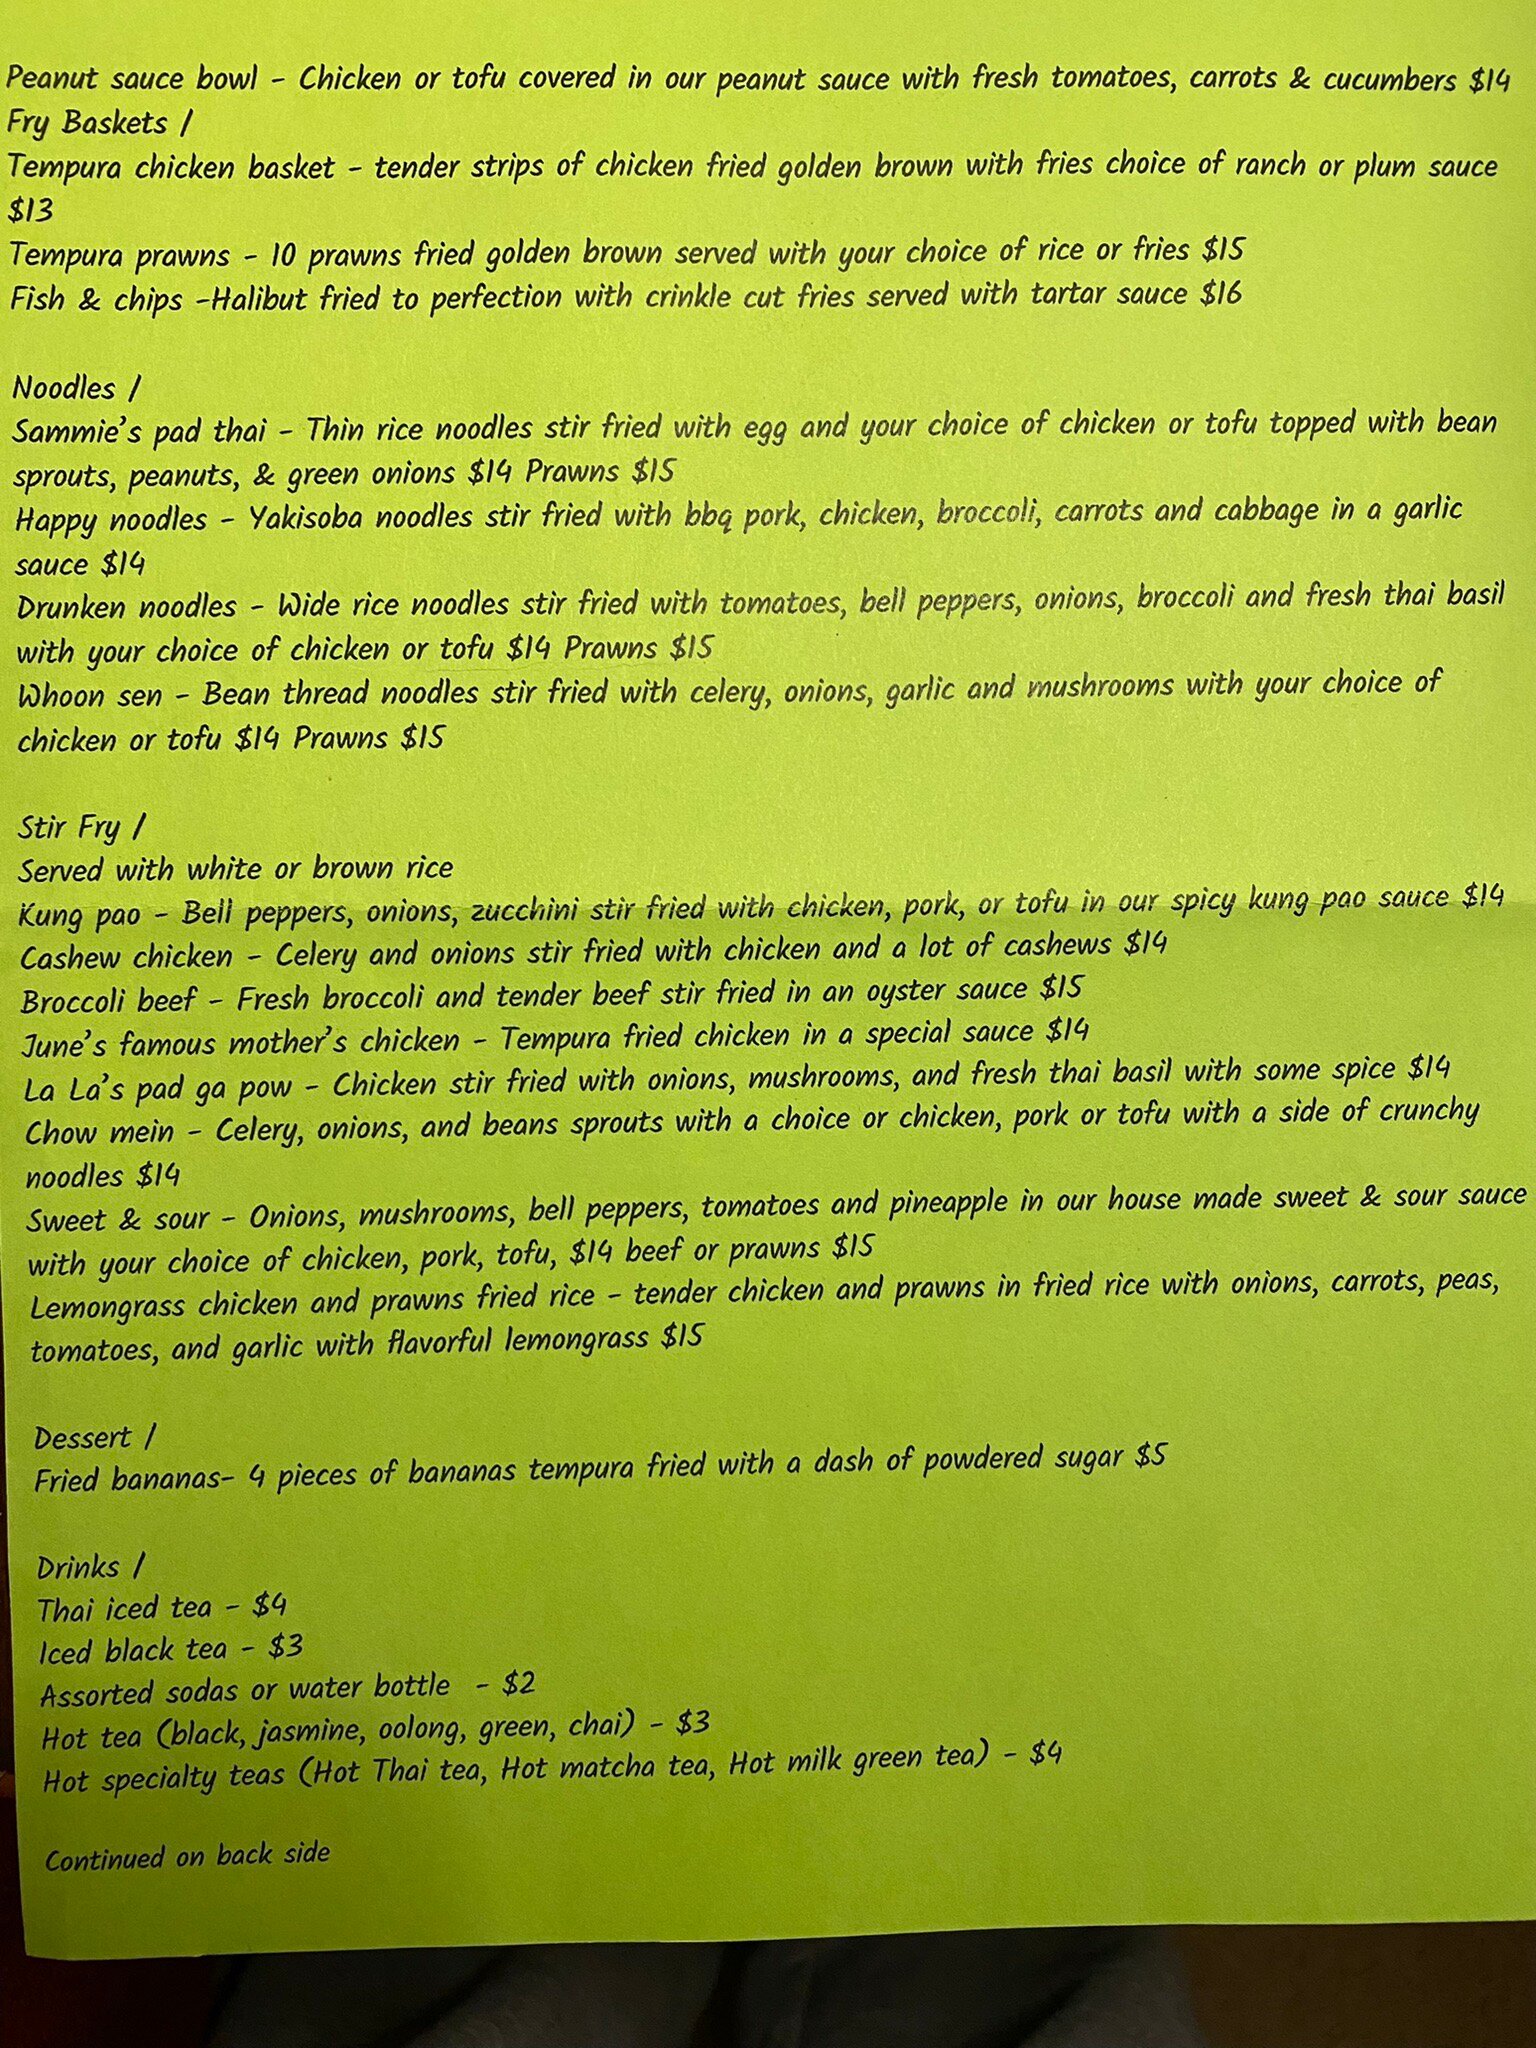 Peanut sauce bowl - Chicken or tofu covered in our peanut sauce with fresh tomatoes, carrots & cucumbers $14
Fry Baskets /
Tempura chicken basket - tender strips of chicken fried golden brown with fries choice of ranch or plum sauce
$13
Tempura prawns - 10 prawns fried golden brown served with your choice of rice or fries $15
Fish & chips -Halibut fried to perfection with crinkle cut fries served with tartar sauce $16
Noodles /
Sammie's pad thai - Thin rice noodles stir fried with egg and your choice of chicken or tofu topped with bean
sprouts, peanuts, & green onions $14 Prawns $15
Happy noodles - Yakisoba noodles stir fried with bbq pork, chicken, broccoli, carrots and cabbage in a garlic
sauce $14
Drunken noodles - Wide rice noodles stir fried with tomatoes, bell peppers, onions, broccoli and fresh thai basil
with your choice of chicken or tofu $14 Prawns $15
Whoon sen - Bean thread noodles stir fried with celery, onions, garlic and mushrooms with your choice of
chicken or tofu $14 Prawns $15
Stir Fry /
Served with white or brown rice
Kung pao - Bell peppers, onions, zucchini stir fried with chicken, pork, or tofu in our spicy kung pao sauce $14
Cashew chicken - Celery and onions stir fried with chicken and a lot of cashews $14
Broccoli beef - Fresh broccoli and tender beef stir fried in an oyster sauce $15
June's famous mother's chicken - Tempura fried chicken in a special sauce $14
La La's pad ga pow - Chicken stir fried with onions, mushrooms, and fresh thai basil with some spice $14
Chow mein - Celery, onions, and beans sprouts with a choice or chicken, pork or tofu with a side of crunchy
noodles $14
Sweet & sour - Onions, mushrooms, bell peppers, tomatoes and pineapple in our house made sweet & sour sauce
with your choice of chicken, pork, tofu, $14 beef or prawns $15
Lemongrass chicken and prawns fried rice - tender chicken and prawns in fried rice with onions, carrots, peas,
tomatoes, and garlic with flavorful lemongrass $15
Dessert /
Fried bananas- 4 pieces of bananas tempura fried with a dash of powdered sugar $5
Drinks /
Thai iced tea - $4
Iced black tea - $3
Assorted sodas or water bottle - $2
Hot tea (black, jasmine, oolong, green, chai) - $3
Hot specialty teas (Hot Thai tea, Hot matcha tea, Hot milk green tea) - $4
Continued on back side